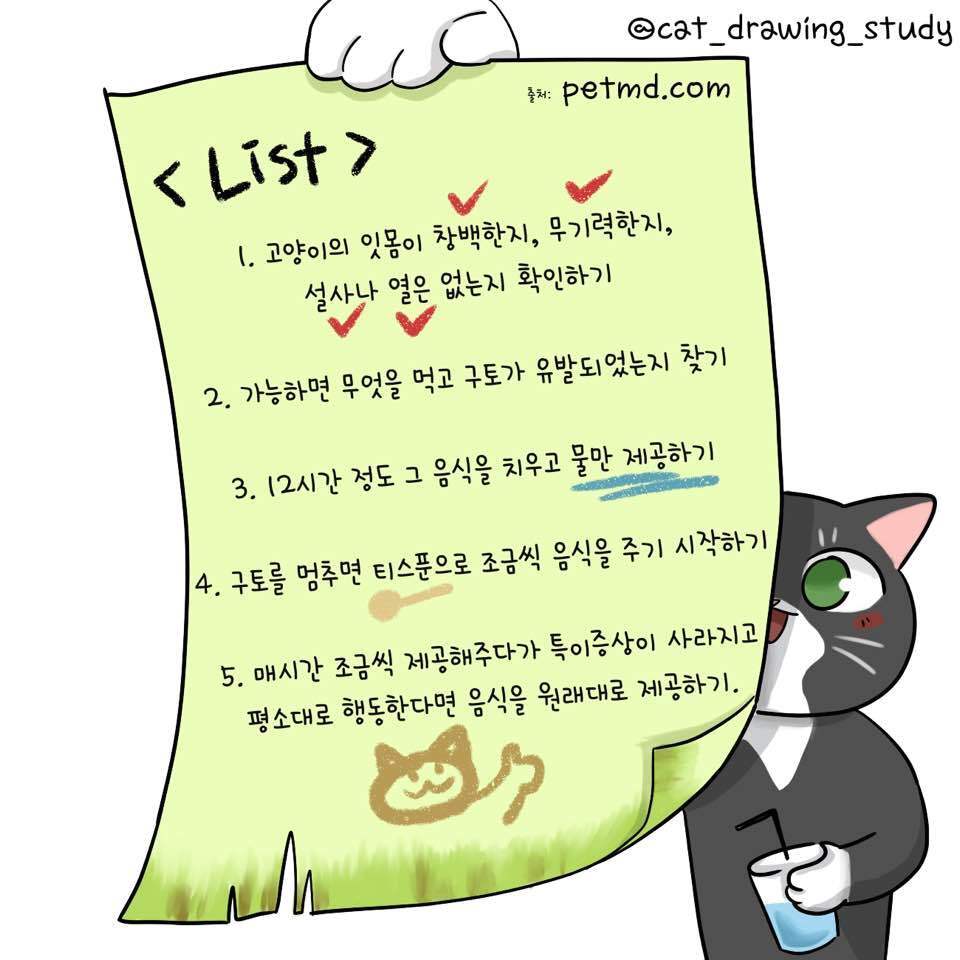 @cat_drawing_study
출처: petmd.com
<List>
1. 고양이의 잇몸이 창백한지, 무기력한지,
설사나 열은 없는지 확인하기
2. 가능하면 무엇을 먹고 구토가 유발되었는지 찾기
3. 12시간 정도 그 음식을 치우고 물만 제공하기
4. 구토를 멈추면 티스푼으로 조금씩 음식을 주기 시작하기
5. 매시간 조금씩 제공해주다가 특이증상이 사라지고
평소대로 행동한다면 음식을 원래대로 제공하기.